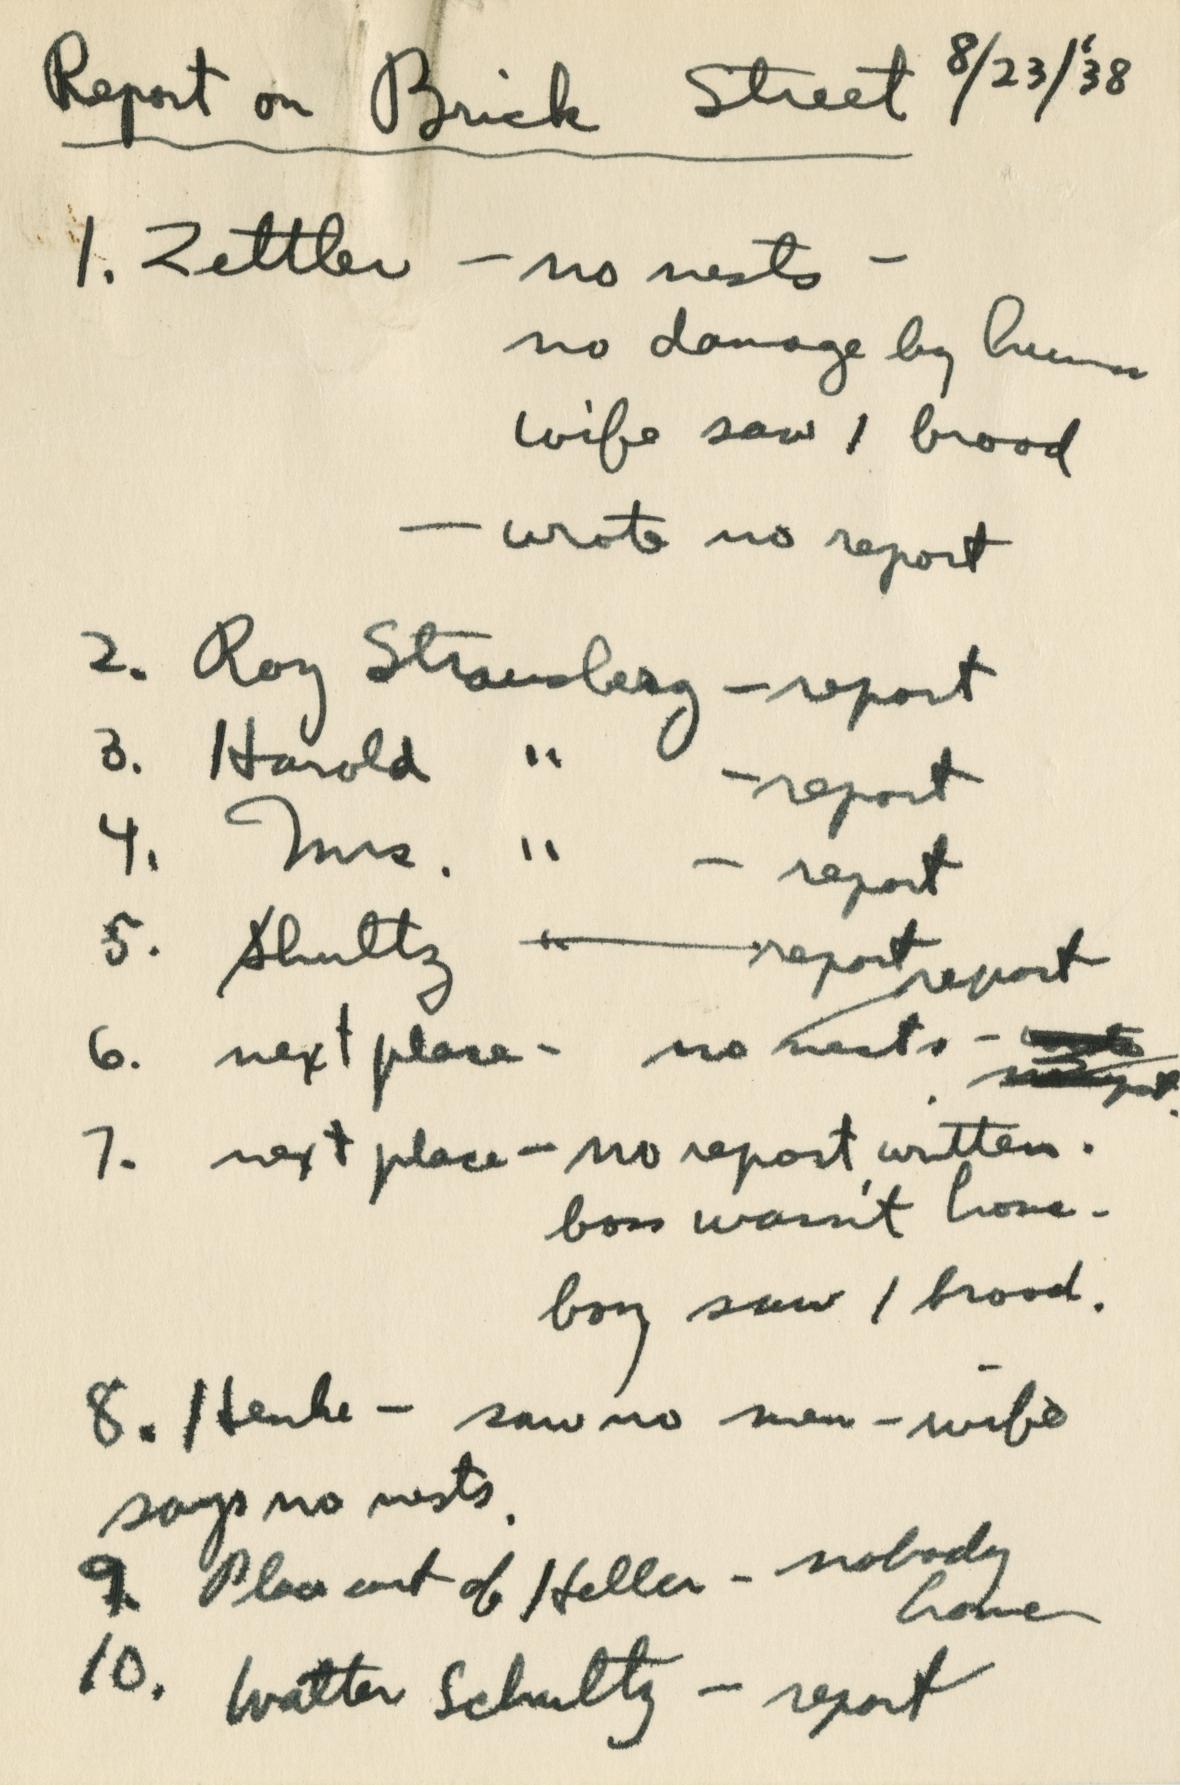 Report on Brick Street 8/23/'38
1. Zettler - no nests -
no damage by
wife saw 1 brood
- wrote no report
2. Roy Strausberg - report
3. Harold " - report
4. Mrs. " - report
5. Shultz " report
report
6. next place - no nests -
7. next place - no report written.
boss wasn't home -
boy saw 1 brood.
8. Henke - saw no men - wife
says no nests.
9. Place east of Heller - nobody
home
10. Walter Schultz - report